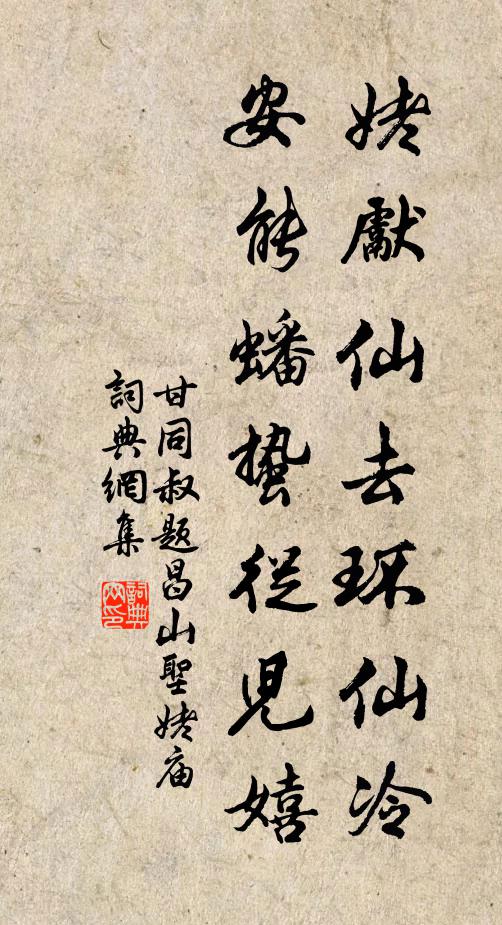 姥獻仙去环仙冷
安能蟠蟄從児嬉
甘同叔題昌山聖姥庙
詞典網集
詞典网印